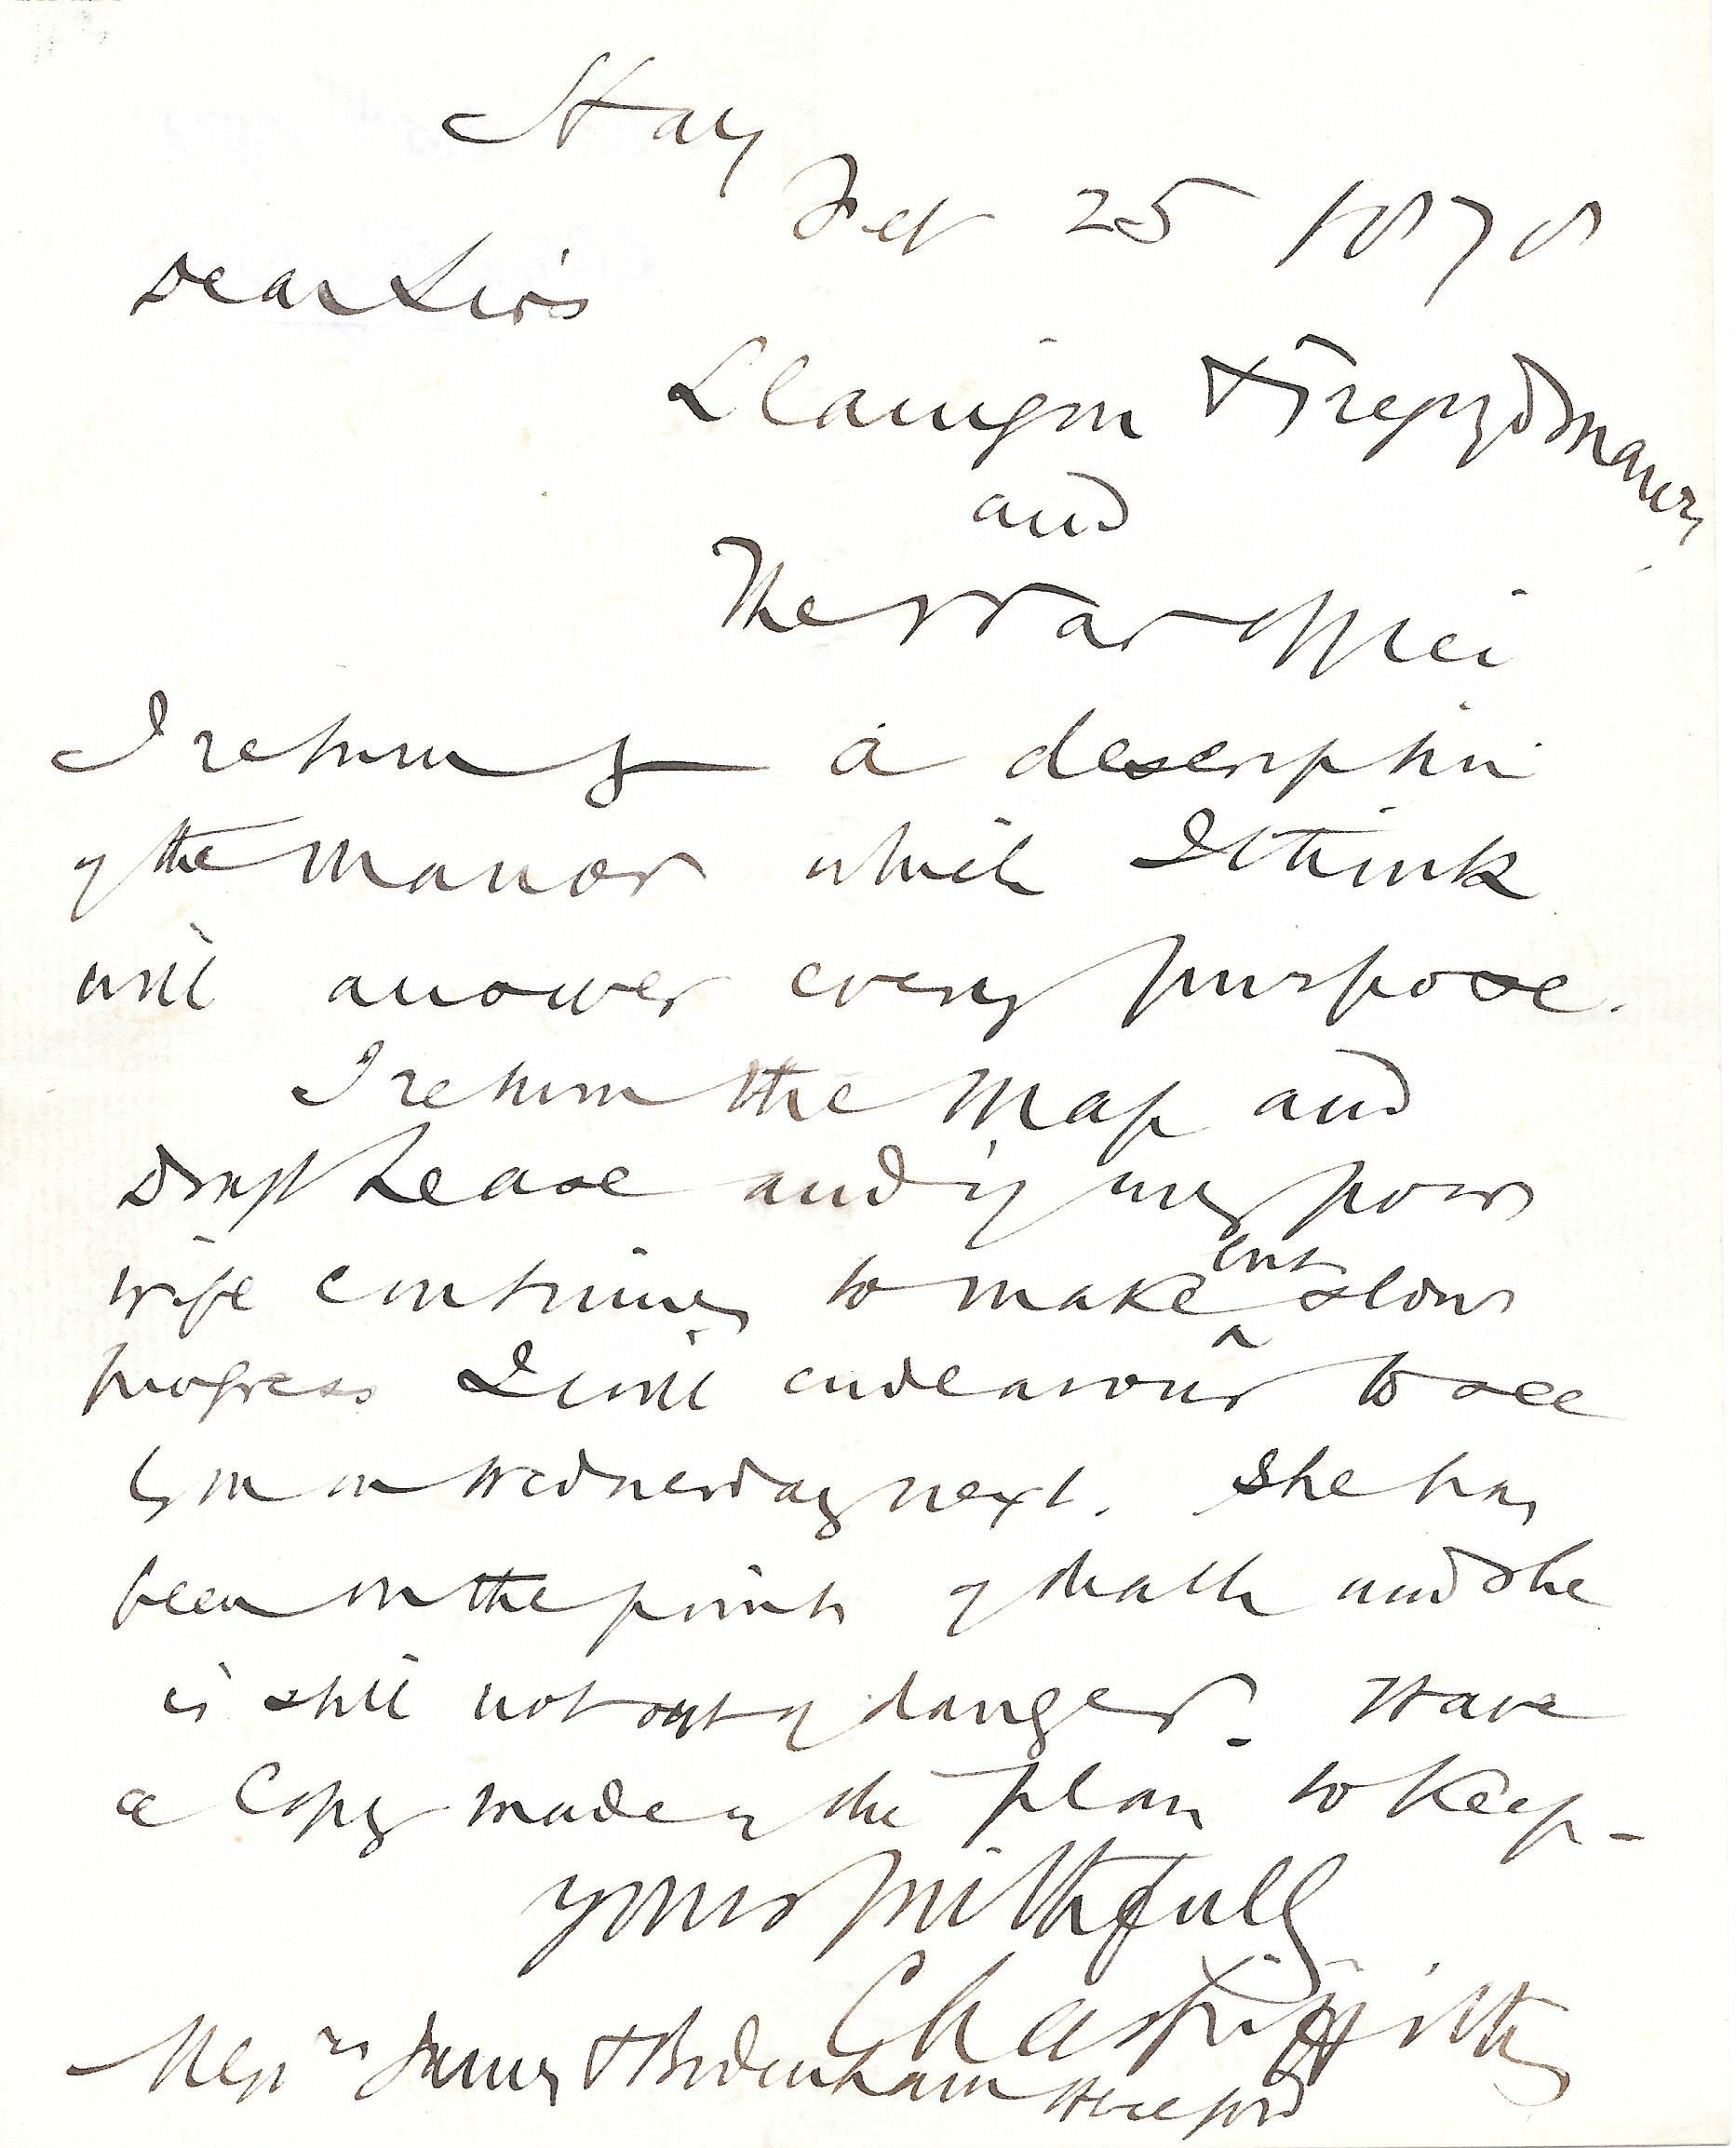 Hay
Feb 25 1878
Dear Sirs
Llanigon & Tregoyd Manors
and
The War Office
I return you a description
of the Manor which I think
will answer every purpose.
I return the Map and
draft Lease and if my poor
wife continues to make but slow
progress I will endeavour to see
you on Wednesday next. She has
been on the point of death and she
is still not out of danger - Have
a Copy made of the plan to keep -
yours faithfully
Chas Griffiths
Messrs James & Bodenham
Hereford